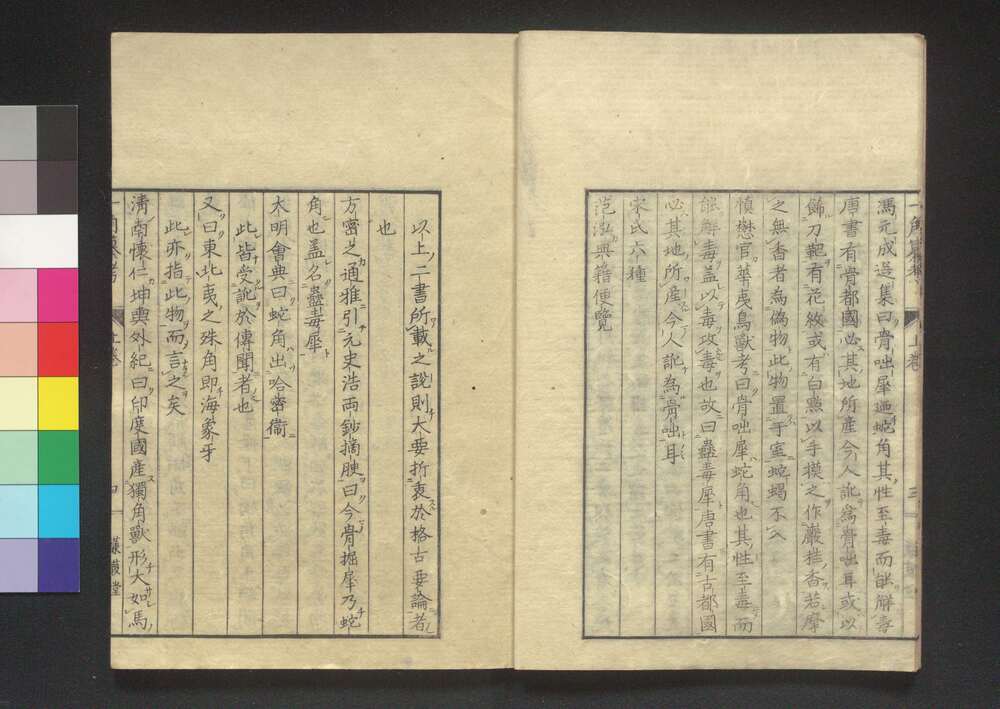 馮元成選集曰骨咄犀迺蛇角其性至毒而能解毒
唐書有骨都國必其地所產今人訛為骨咄耳或以
飾刀靶有花紋或有白點以手摸之作巖桂香若摩
之無香者為偽物此物置于室蛇蝎不入
慎懋官華夷鳥獸考曰骨咄犀蛇角也其性至毒而
能解毒蓋以毒攻毒也故曰蠱毒犀唐書有古都國
必其地所產今人訛為骨咄耳
宋氏六種
范泓典籍便覽
以上二書所載之說則大要折衷於格古要論者
也
方密之通雅引元史浩兩鈔摘腴曰今骨掘犀乃蛇
角也蓋名蠱毒犀
大明會典曰蛇角出哈密衛
此皆受訛於傳聞者也
又曰東北夷之殊角即海象牙
此亦指此物而言之矣
清南懷仁坤輿外紀曰印度國產獨角獸形大如馬